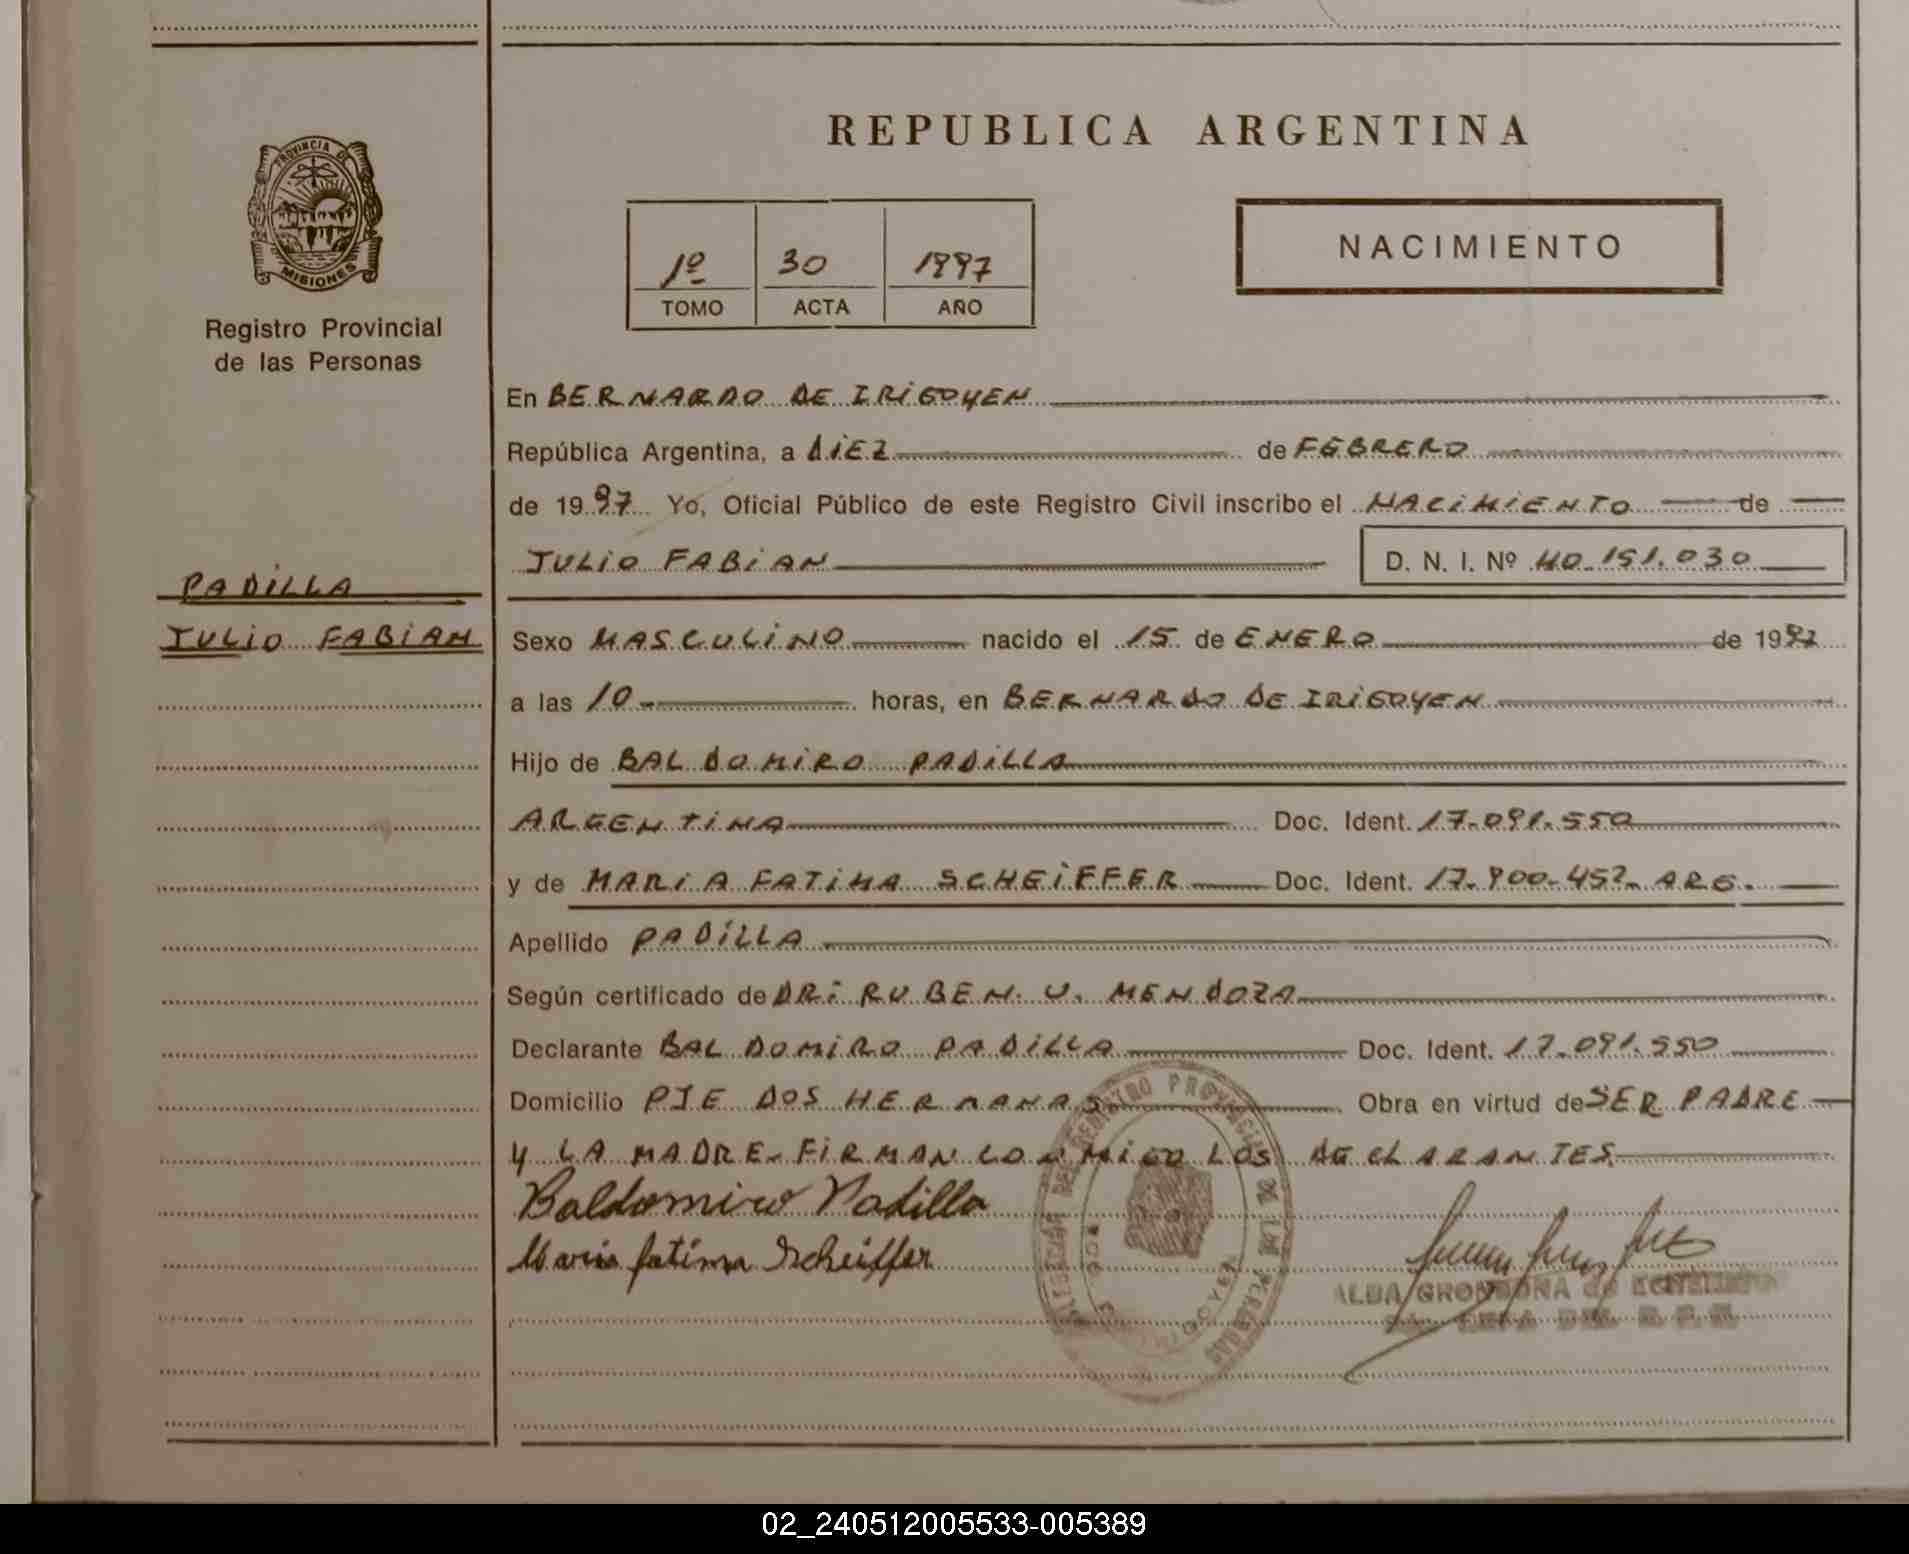 REPUBLICA ARGENTINA
PROVINCIA DE
MISIONES
Registro Provincial
de las Personas
1º 30 1997
TOMO ACTA AÑO
NACIMIENTO
En BERNARDO DE IRIGOYEN
República Argentina, a DIEZ de FEBRERO
de 1997 Yo, Oficial Público de este Registro Civil inscribo el NACIMIENTO de
JULIO FABIAN D. N. I. Nº 40.151.030
PADILLA
JULIO FABIAN
Sexo MASCULINO nacido el 15 de ENERO de 1997
a las 10 horas, en BERNARDO DE IRIGOYEN
Hijo de BALDOMIRO PADILLA
ARGENTINA Doc. Ident. 17.091.550
y de MARIA FATIMA SCHEIFFER Doc. Ident. ARG.
Apellido PADILLA
Según certificado de DR: RUBEN. U. MENDOZA
Declarante BALDOMIRO PADILLA Doc. Ident. 17.091.550
Domicilio PJE DOS HERMANAS Obra en virtud de SER PADRE
Y LA MADRE. FIRMAN CONMIGO LOS DECLARANTES.
Baldomiro Padilla
Maria fatima Scheiffer
REGISTRO PROVINCIAL DE LAS PERSONAS
ALBA GRONDONA de
02_240512005533-005389